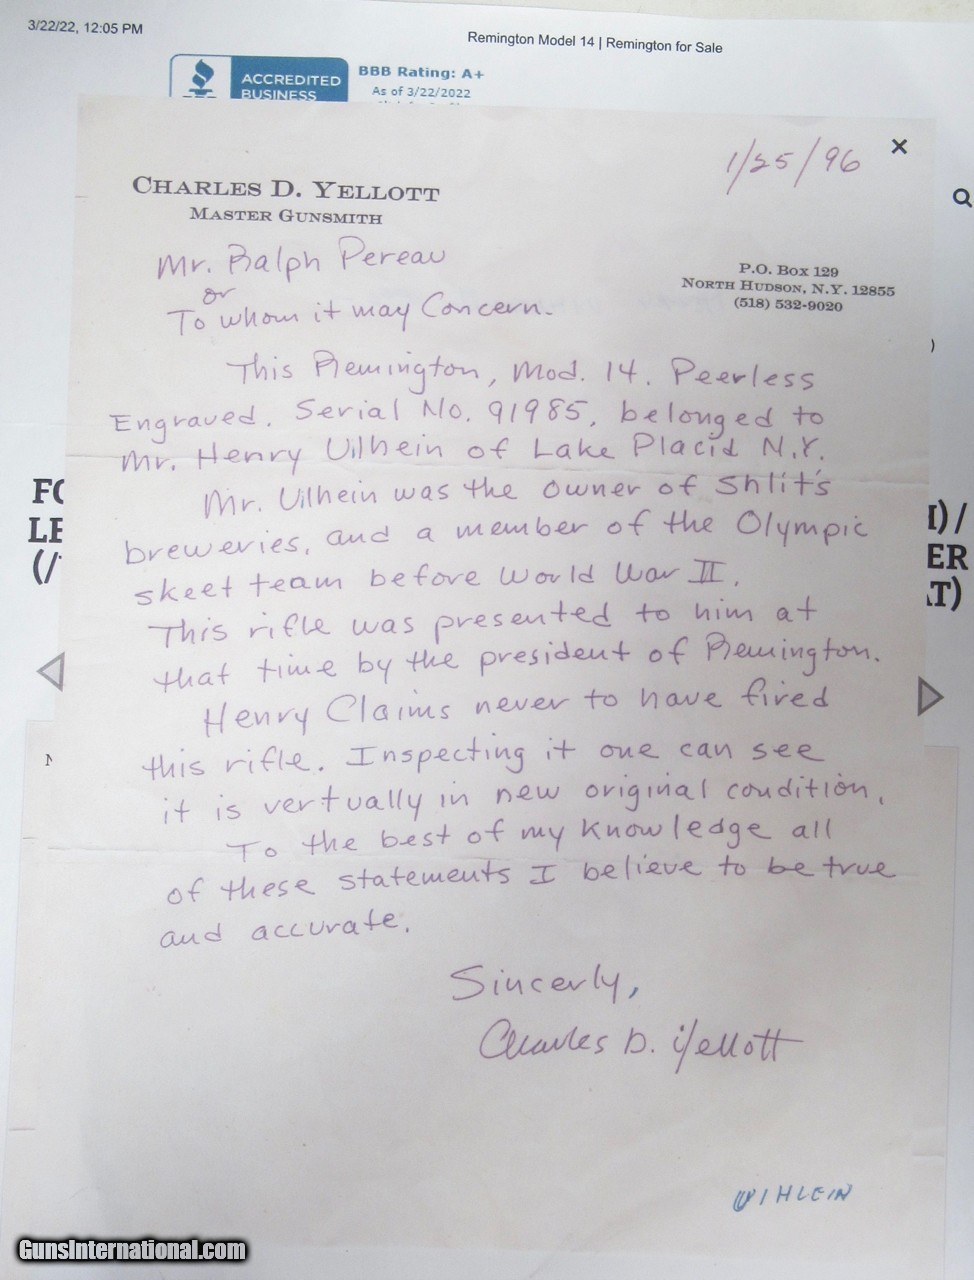 3/22/22, 12:05 PM
Remington Model 14 | Remington for Sale
ACCREDITED
BUSINESS
BBB Rating: A+
As of 3/22/2022
1/25/96
×
CHARLES D. YELLOTT
MASTER GUNSMITH
P.O. BOX 129
NORTH HUDSON, N.Y. 12855
(518) 532-9020
Mr. Ralph Pereau
or
To whom it may Concern.
This Remington, Mod. 14. Peerless
Engraved. Serial No. 91985, belonged to
Mr. Henry Uilhein of Lake Placid N.Y.
Mr. Uilhein was the owner of Shlit's
breweries, and a member of the Olympic
skeet team before World War II.
This rifle was presented to him at
that time by the president of Remington.
Henry Claims never to have fired
this rifle. Inspecting it one can see
it is vertually in new original condition.
To the best of my knowledge all
of these statements I believe to be true
and accurate.
Sincerly,
Charles D. Yellott
UIHLEIN
FO
LE
(/
I) /
ER
T)
GunsInternational.com